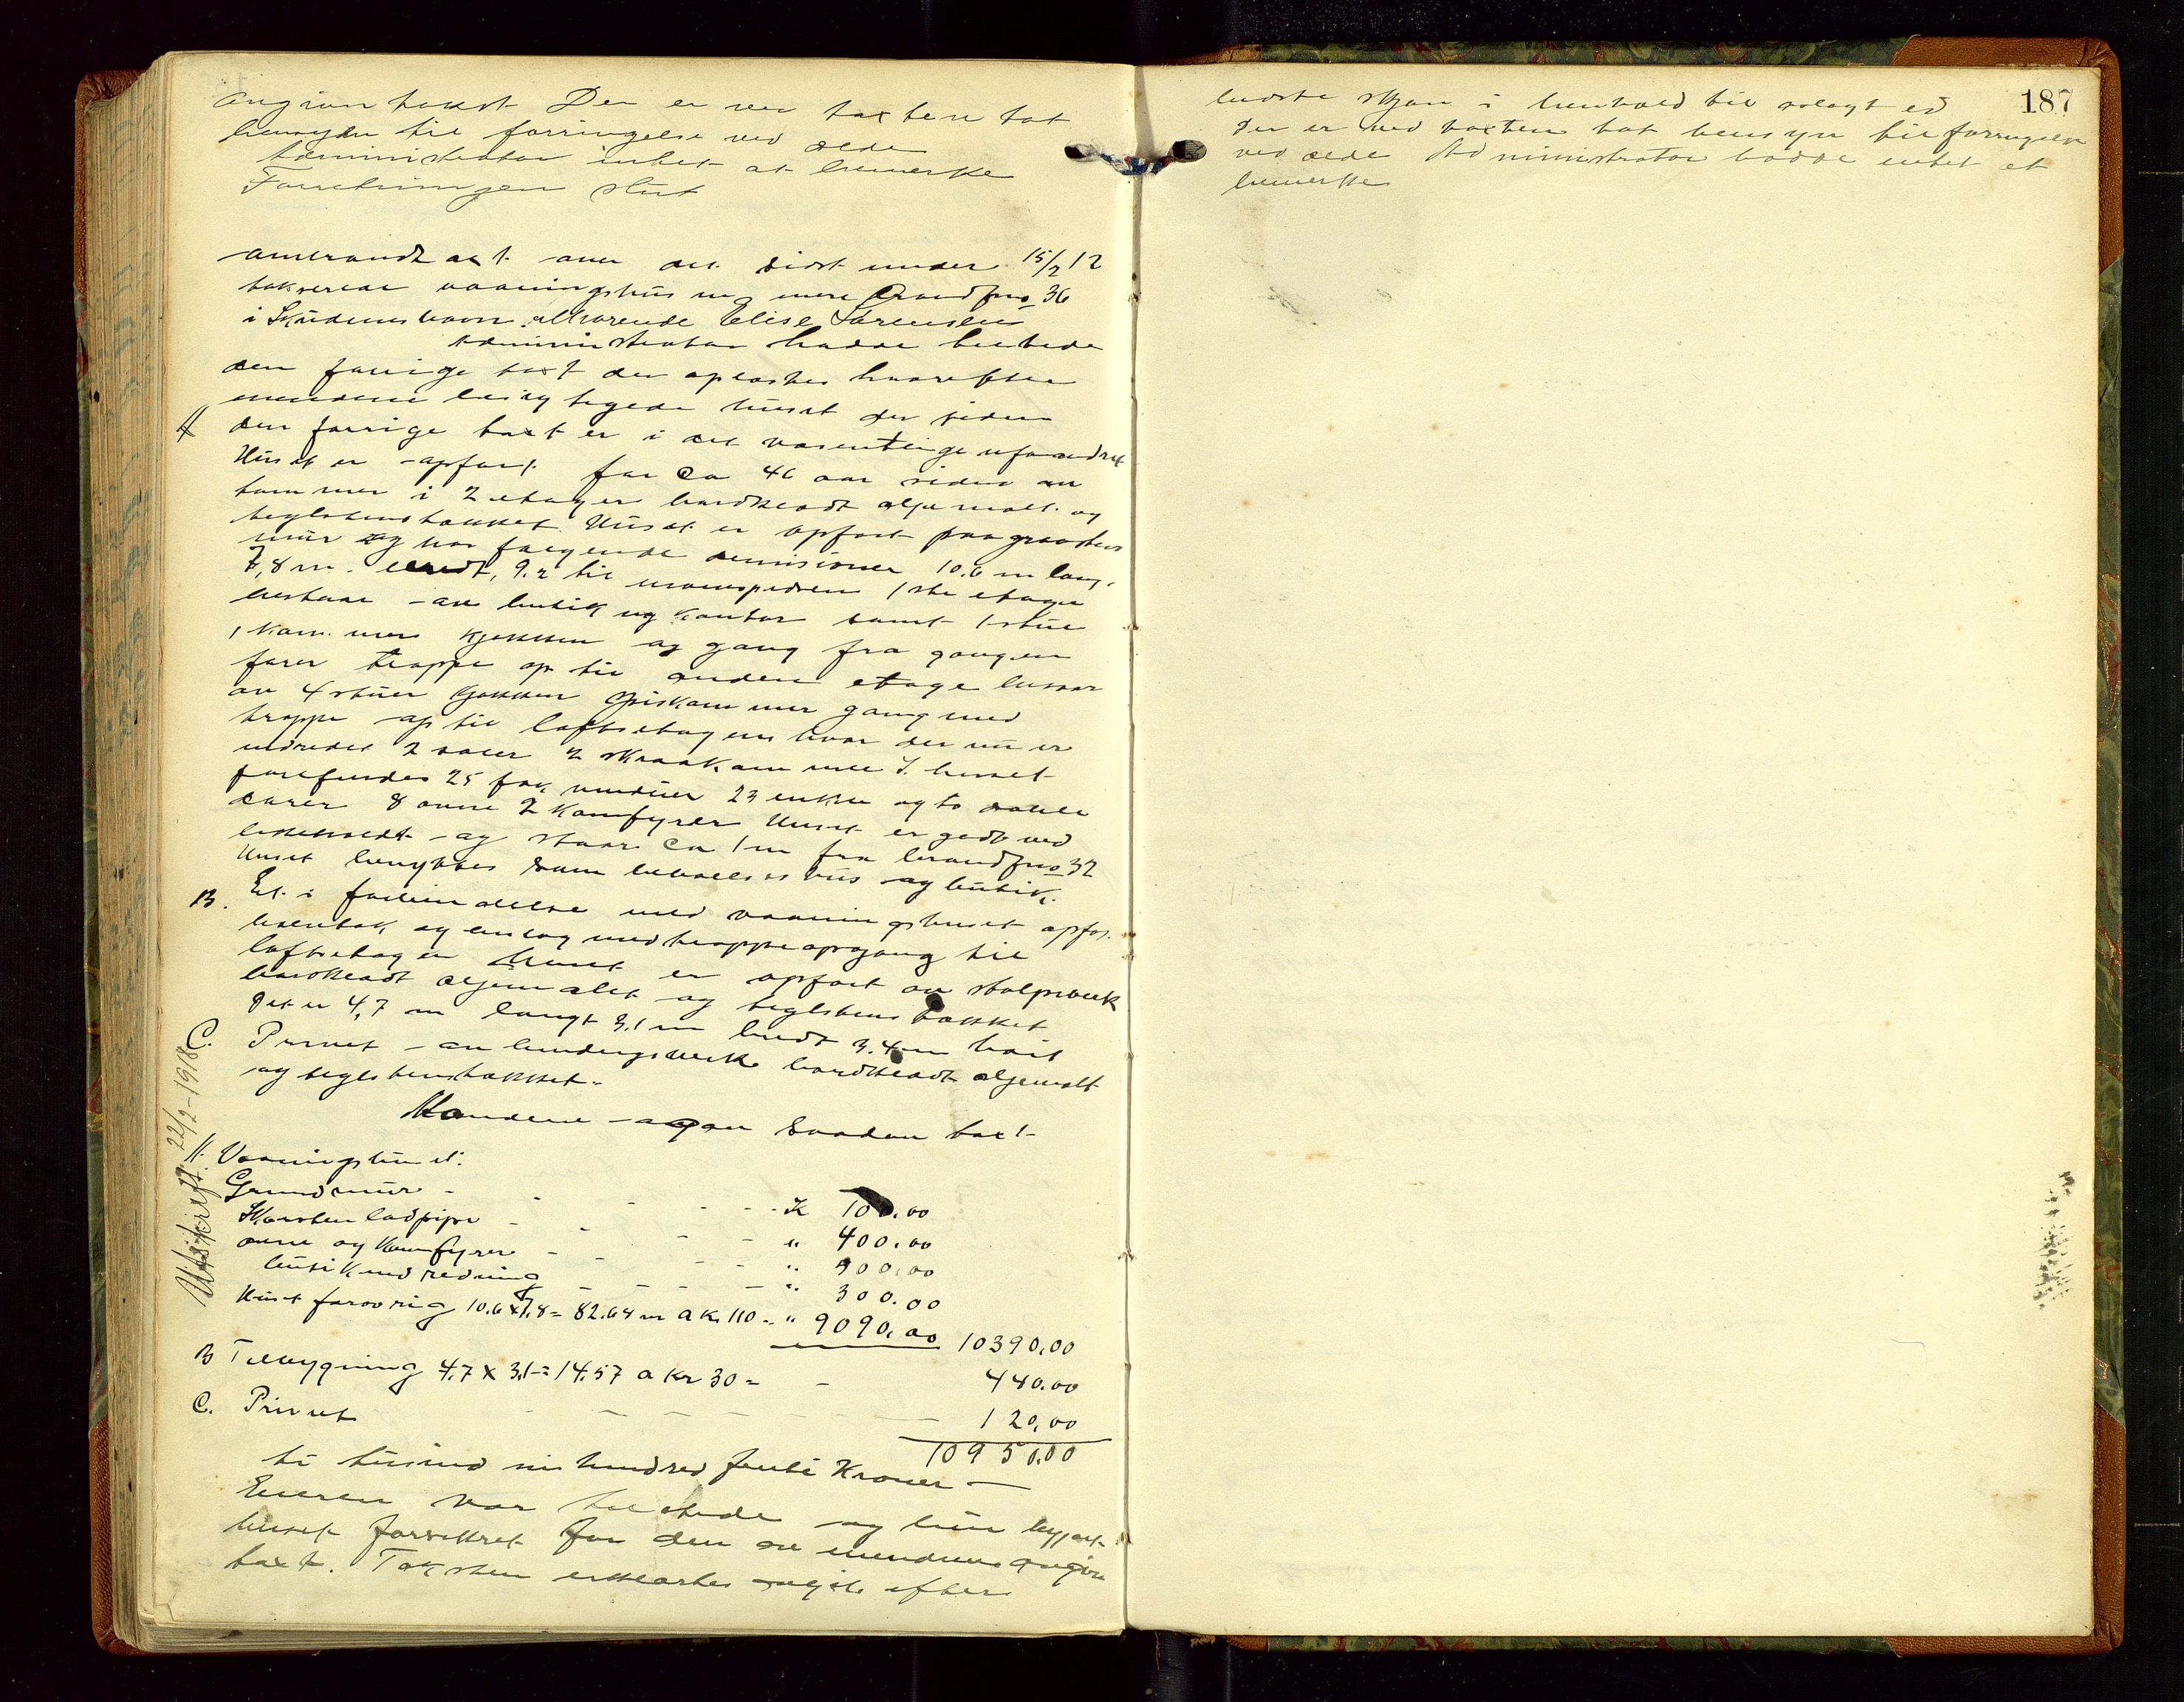 angivne takst Der er ved taxten tat
hensyn til forringelse ved ælde
Administrator intet at bemerke
Forretningen slut
ombrandtaxt over det sidst under 15/2 12
takserede vaaningshus m mere Brandf no 36
i Skudeneshavn tilhørende Elise Sørensen
Administrator hadde tilstede
den forrige taxt der oplæstes hvorefter
mændene besigtigede huset der siden
A den forrige taxt er i det væsentlige uforandret
Huset er opført for ca 46 aar siden av
tømmer i 2 etager bordklædt oljemalt og
teglstenstækket Huset er opført paa graastens
mur og har følgende dimisioner 10.6 m lang,
7,8 m. bredt, 9.2 til mønespidsen 1ste etage
bestaar av butik og kontor samt 1 stue
1 kammer kjøkken og gang fra gangen
fører trappe op til anden etage bestaar
av 4 stuer kjøkken spiskammer gang med
trappe op til loftsetagen hvor der nu er
indredet 2 saler 2 skraakammer I huset
forefindes 25 fag vinduer 23 enkle og to doble
dører 8 ovne 2 komfyrer Huset er godt ved
likeholdt og staar ca 1 m fra brandf no 32
Huset benyttes som beboelseshus og butik.
B. Et i forbindelse med vaaningshuset opfør
 og med trappeopgang til
loftsetagen Huset er opført av stolpeverk
bordklædt oljemalet og teglstenstækket
Det er 4,7 m langt 3,1 m bredt 3.4 m høit
C. Privet av bindingsverk bordklædt oljemalt
og teglstenstækket.
Mændene avgav saadan taxt
A. Vaaningshuset:
Grundmur - - - - - K 100.00
Skorsten ladpipe - - - - " 400.00
ovne og Komfyrer - - - - " 500.00
butikindredning - - - - " 300.00
Huset forøvrig 10.6 x 7.8 = 82.64 m a K. 110 - " 9090,00 10390,00
B Tilbygning 4.7 x 3.1 = 14.57 a Kr 30 = - 440.00
C. Privet - - - - - - 120,00
10950,00
ti tusind ni hundred femti Kroner -
Eieren var tilstede og hun begjært
huset forsikret for den av mændene angivne
taxt. Taksten erklærtes avgit efter
Utskrift 22/2-1918
187
bedste skjøn i henhold til avlagt ed
Der er ved taxten tat hensyn til forringelse
ved ælde Administrator hadde intet at
bemerke